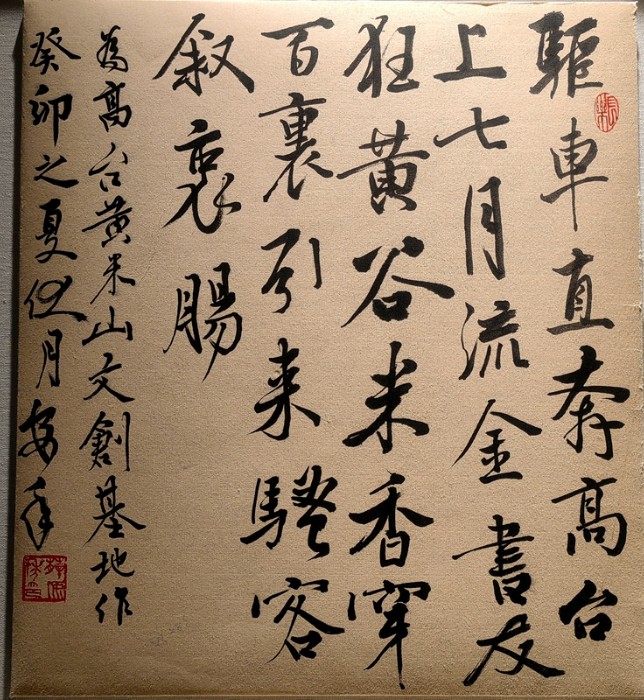 驅車直奔高台
上七月流金書友
狂黄谷米香穿
百裏引来騷客
叙衷腸
為高台黄米山文創基地作
癸卯之夏伏月